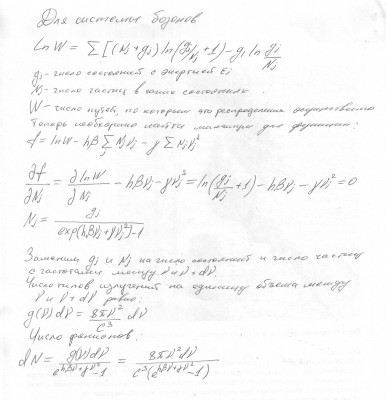 Для системы бозонов
ln W = Σ[(Nj+gj) ln(gj/Nj+1) - gj ln gj/Nj
gj - число состояний с энергией Ej
Nj - число частиц в таких состояниях.
W - число путей, по которым это распределение осуществимо
Теперь необходимо найти максимум для функции:
f = lnW - hβ Σj Njνj - γ Σ Njνj²
∂f/∂Nj = ∂ lnW/∂Nj - hβνj - γνj² = ln(gj/Nj + 1) - hβνj - γνj² = 0
Nj = gj/exp(hβνj+γνj²)-1
Заменим gj и Nj на число состояний и число частиц
с частотами между ν и ν + dν.
Число типов излучений на единицу объема между
ν и ν + dν равно:
g(ν) dν = 8πν²/c³ dν
Число фотонов:
dN = g(ν)dν/e^(hβν+γν²)-1 = 8πν²dν/c³(e^(hβν+γν²)-1)